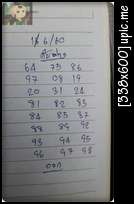 16/6/60
64 75 86
97 08 19
20 31 24
81 82 83
84 85 87
88 89 92
93 94 95
96 97 98
[338x600] upic.me